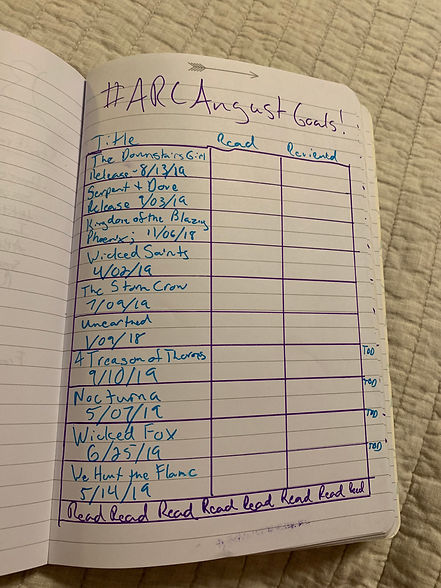 #ARCAugust Goals!
Title Read Reviewed
The Downstairs Girl
Release - 8/13/19
Serpent & Dove
Release 9/03/19
Kingdom of the Blazing
Phoenix; 11/06/18
Wicked Saints
4/02/19
The Storm Crow
7/09/19
Unearthed
1/09/18
A Treason of Thorns
9/10/19
Nocturna
5/07/19
Wicked Fox
6/25/19
We Hunt the Flame
5/14/19
Read Read Read Read Read Read Read Read